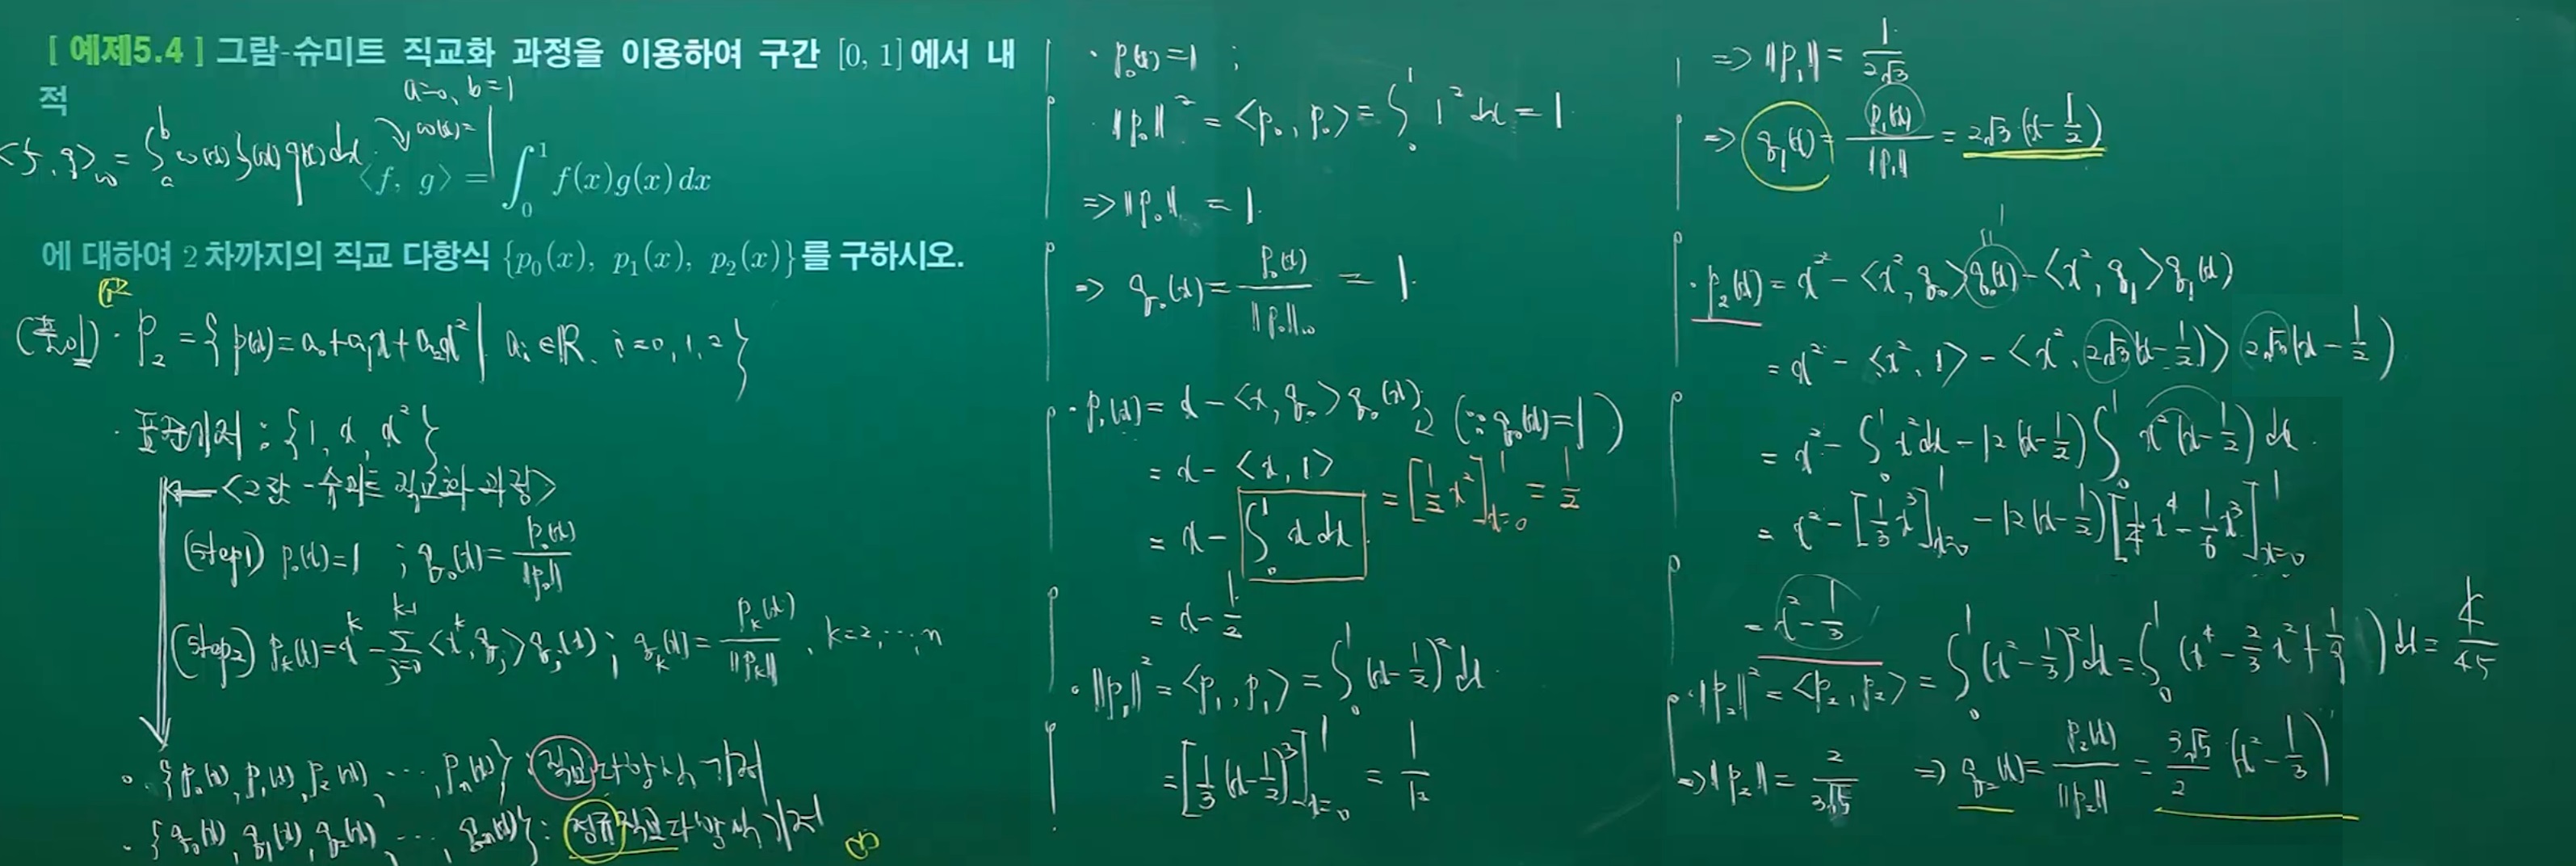 [ 예제5.4 ] 그람-슈미트 직교화 과정을 이용하여 구간 [0, 1]에서 내
적
a=0, b=1
<f, g>_w = ∫_a^b w(x) f(x) g(x) dx
w(x)=1
⟨f, g⟩ = ∫_0^1 f(x)g(x) dx
에 대하여 2차까지의 직교 다항식 {p_0(x), p_1(x), p_2(x)}를 구하시오.
(풀이) · P_2 = { p(x)=a_0+a_1x+a_2x^2 | a_i ∈ ℝ, i=0, 1, 2 }
· 표준기저 : {1, x, x^2}
<그람-슈미트 직교화 과정>
(step1) p_0(x)=1 ; q_0(x)= p_0(x)/||p_0||
(step2) p_k(x)=x^k - Σ_{j=0}^{k-1} <x^k, q_j> q_j(x) ; q_k(x)= p_k(x)/||p_k|| , k=2, ⋯, n
· {p_0(x), p_1(x), p_2(x), ⋯, p_n(x)} : 직교다항식 기저
· {q_0(x), q_1(x), q_2(x), ⋯, q_n(x)} : 정규직교다항식 기저
· p_0(x)=1 ;
· ||p_0||^2 = <p_0, p_0> = ∫_0^1 1^2 dx = 1
=> ||p_0|| = 1.
=> q_0(x) = p_0(x)/||p_0||_w = 1.
· p_1(x) = x - <x, q_0> q_0(x) (∵ q_0(x)=1)
= x - <x, 1>
= x - ∫_0^1 x dx = [1/2 x^2]_{x=0}^1 = 1/2
= x - 1/2
· ||p_1||^2 = <p_1, p_1> = ∫_0^1 (x-1/2)^2 dx
= [1/3 (x-1/2)^3]_{x=0}^1 = 1/12
=> ||p_1|| = 1/(2√3)
=> q_1(x) = p_1(x)/||p_1|| = 2√3 (x-1/2)
1
=
· p_2(x) = x^2 - <x^2, q_0> q_0(x) - <x^2, q_1> q_1(x)
= x^2 - <x^2, 1> - <x^2, 2√3(x-1/2)> 2√3(x-1/2)
= x^2 - ∫_0^1 x^2 dx - 12(x-1/2) ∫_0^1 x^2(x-1/2) dx.
= x^2 - [1/3 x^3]_{x=0}^1 - 12(x-1/2) [1/4 x^4 - 1/6 x^3]_{x=0}^1
= x^2 - 1/3
· ||p_2||^2 = <p_2, p_2> = ∫_0^1 (x^2-1/3)^2 dx = ∫_0^1 (x^4 - 2/3 x^2 + 1/9) dx = 4/45
=> ||p_2|| = 2/(3√5) => q_2(x) = p_2(x)/||p_2|| = 3√5/2 (x^2-1/3)